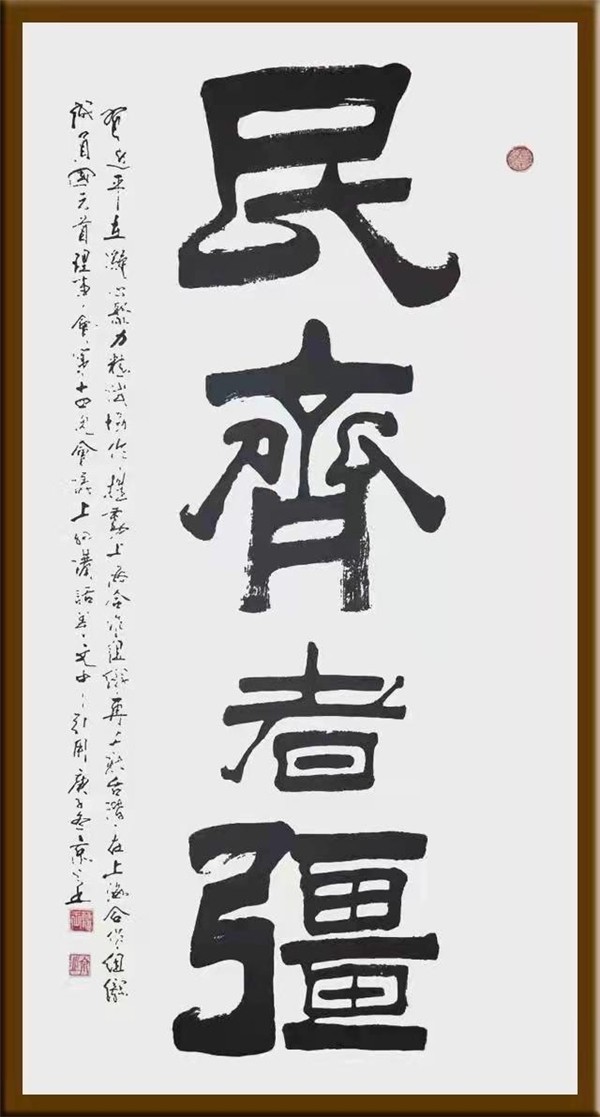 民齊者彊
習近平在凝心聚力精誠協作推動上海合作組織再上新台階在上海合作組織
成員國元首理事會第十四次會議上的講話文中引用庚子冬京